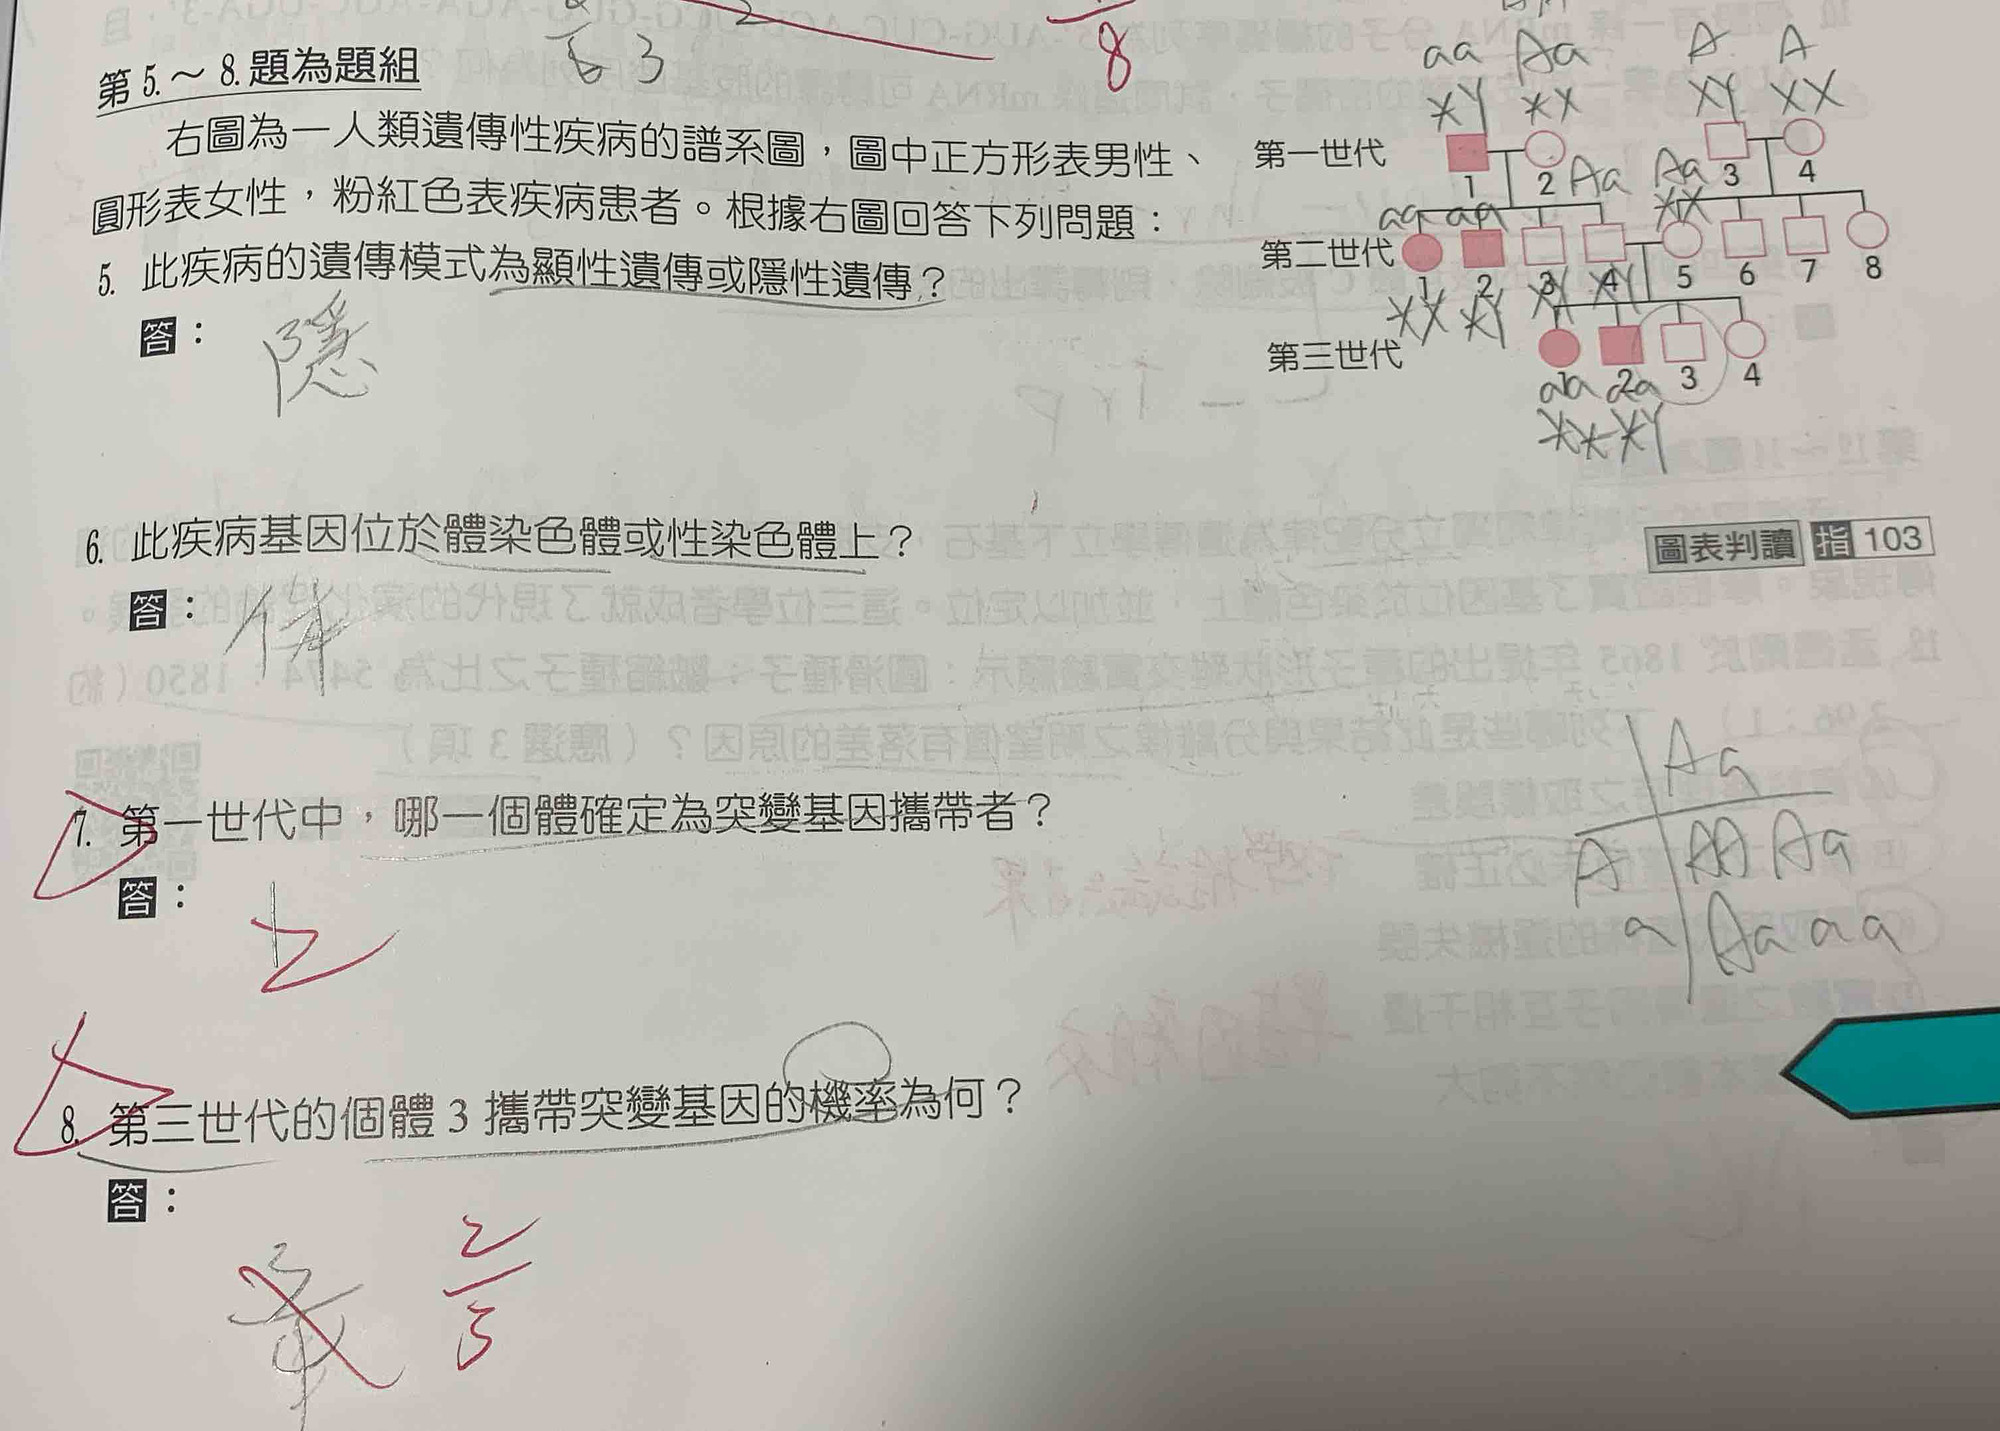 8
3
第5.～8.題為題組
右圖為一人類遺傳性疾病的譜系圖，圖中正方形表男性、
圓形表女性，粉紅色表疾病患者。根據右圖回答下列問題：
aa Aa A A
XY XX XY XX
第一世代
1 2 Aa Aa 3 4
XX
aa aa
第二世代
1 2 3 4 5 6 7 8
XX XY XY XY
第三世代
1 2 3 4
aa aa
XX XY
5. 此疾病的遺傳模式為顯性遺傳或隱性遺傳？
答：
隱
6. 此疾病基因位於體染色體或性染色體上？
答：
圖表判讀 指103
7. 第一世代中，哪一個體確定為突變基因攜帶者？
答：
2
Aa
A AA Aa
a Aa aa
8. 第三世代的個體3攜帶突變基因的機率為何？
答：
2
3